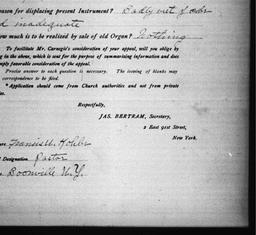 eason for displacing present Instrument? Badly out of order
d inadequate
ow much is to be realized by sale of old Organ? Nothing
To facilitate Mr. Carnegie's consideration of your appeal, will you oblige by
ng in the above, which is sent for the purpose of summarising information and does
mply favorable consideration of the appeal.
Precise answer to each question is necessary. The issuing of blanks may
correspondence to be filed.
"Application should come from Church authorities and not from private
Respectfully,
JAS. BERTRAM, Secretary,
2 East 91st Street,
New York.
Francis M.
Designation. Pastor
Boonville N.Y.